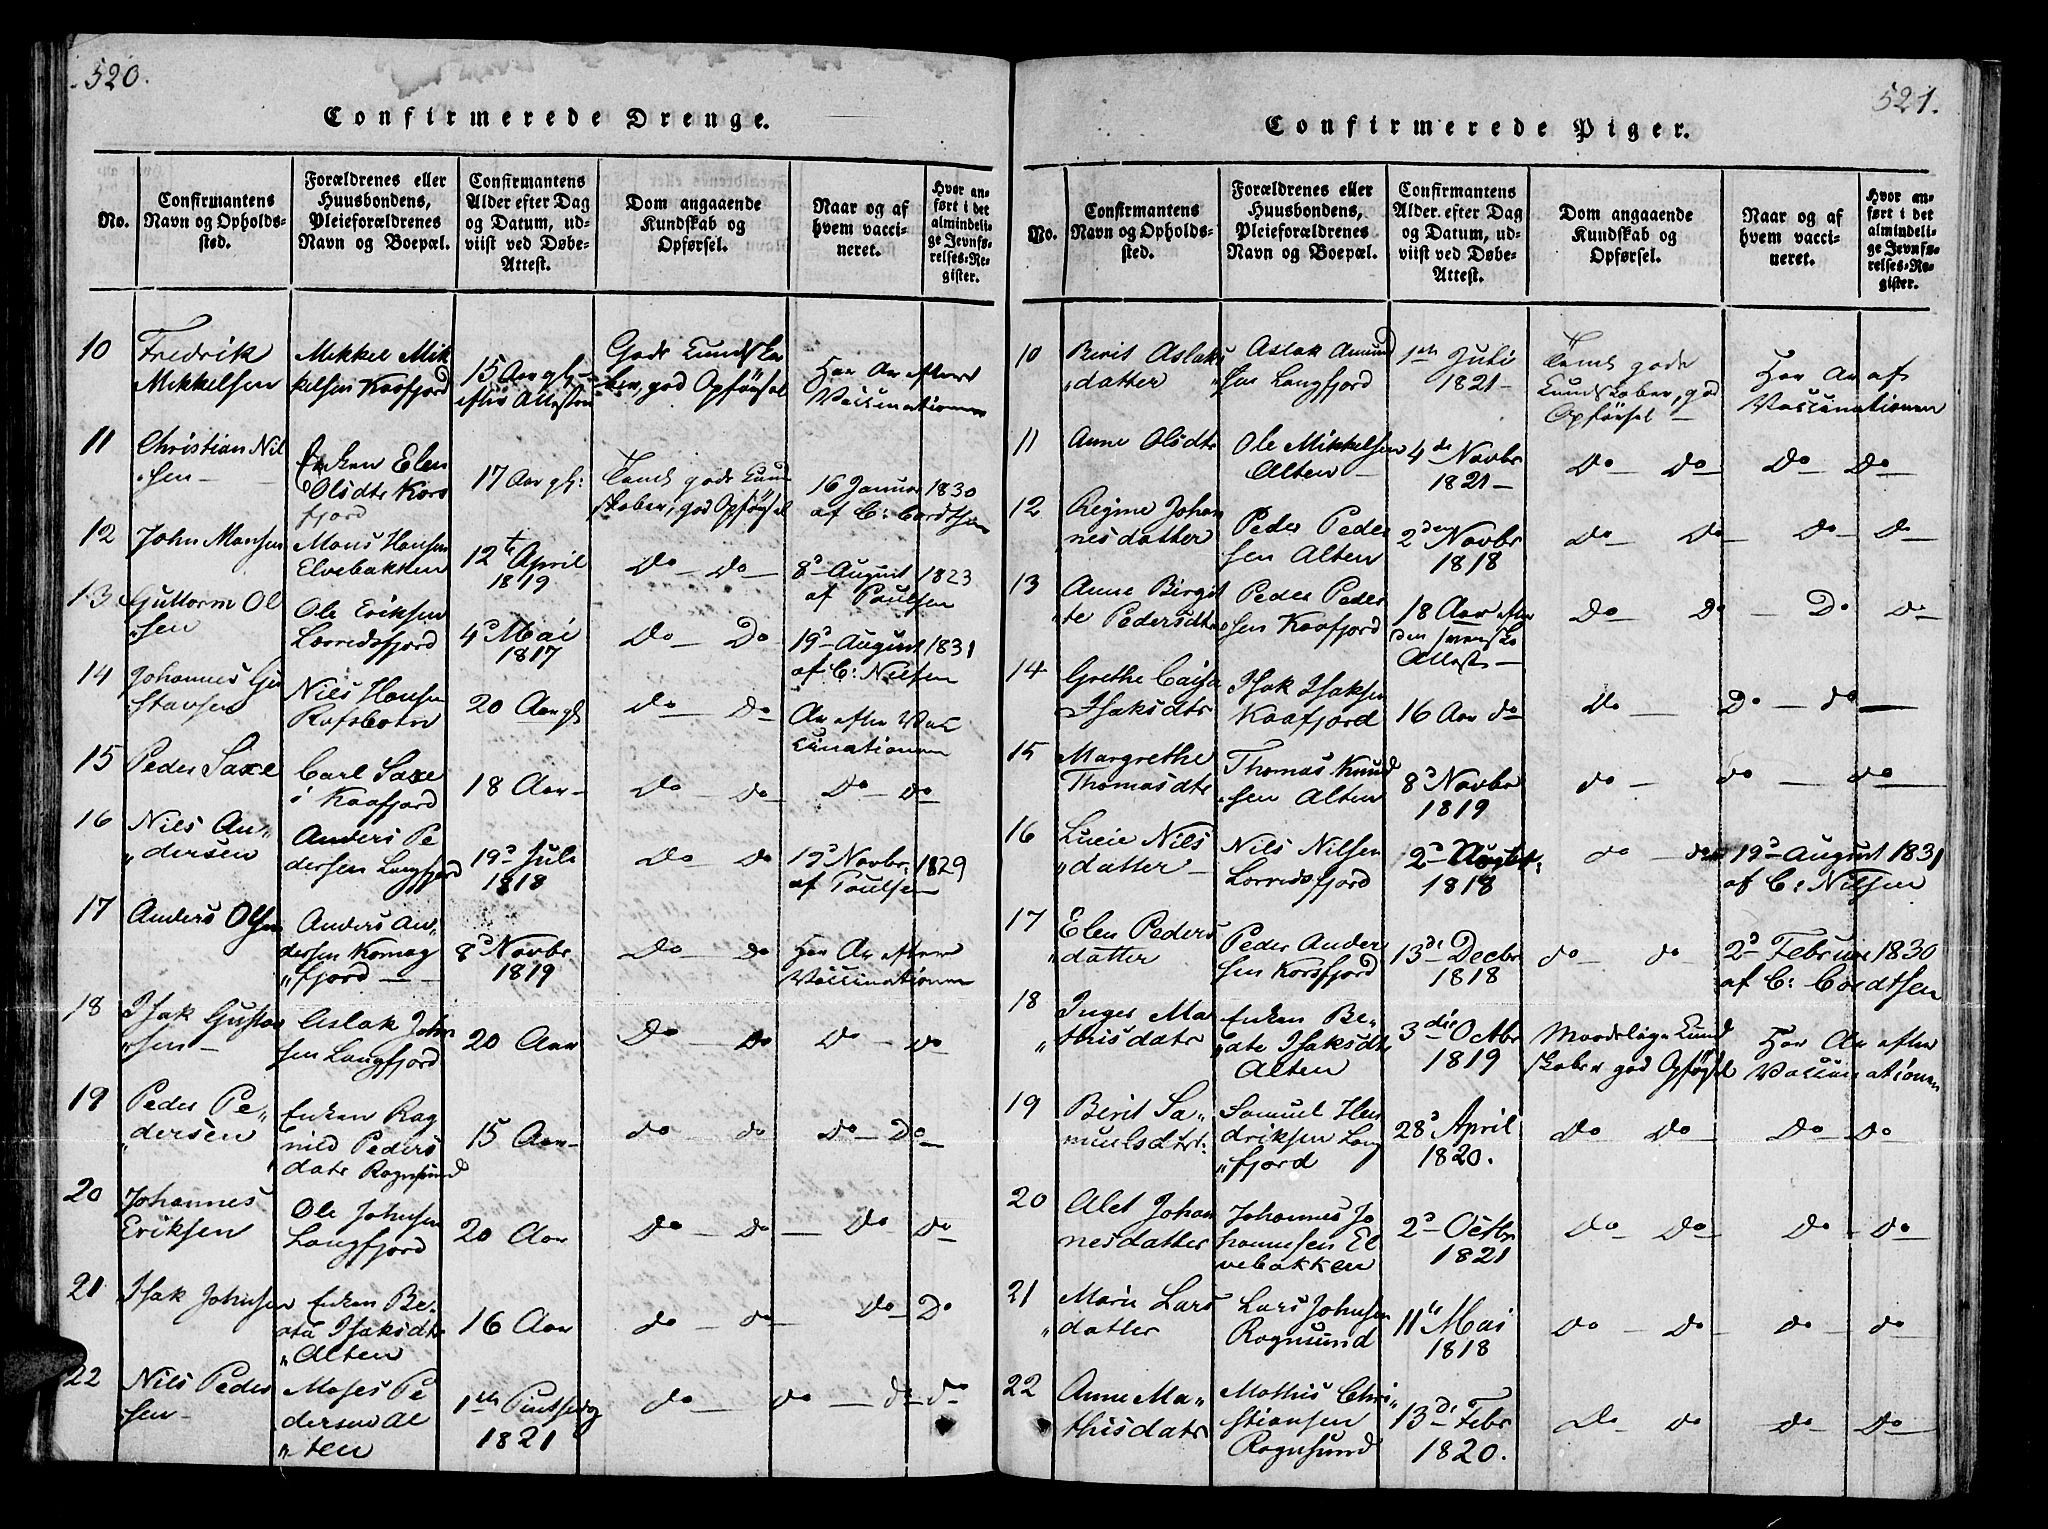 520.
Confirmerede Drenge.
No.
Confirmantens
Navn og Opholds-
sted.
Forældrenes eller
Huusbondens,
Pleieforældrenes
Navn og Boepæl.
Confirmantens
Alder efter Dag
og Datum, ud-
viist ved Døbe-
Attest.
Dom angaaende
Kundskab og
Opførsel.
Naar og af
hvem vacci-
neret.
Hvor an-
ført i det
almindeli-
ge Jevnfø-
relses-Re-
gister.
10
Fredrik
Mikkelsen
Mikkel Mik
kelsen Kaafjord
15 Aar gl:
efter Attesten
Gode Kundska
ber, god Opførsel
Har Ar efter
Vaccinationen
11
Christian Nil
sen
Enken Elen
Olsdtr Kors
fjord
17 Aar gl:
Temml gode Kund
skaber, god Opførsel
16 Januar 1830
af C: Cordtsen
12
John Monsen
Mons Hansen
Elvebakken
12te April
1819
Do - Do
8d August 1823
af Poulsen
13
Guttorm Ol
sen
Ole Eriksen
Lerredsfjord
4d Mai
1817
Do - Do
19d August 1831
af C: Nilsen
14
Johannes Gu
stavsen
Nils Hansen
Rafsbotn
20 Aar gl
Do - Do
Ar efter Vac
cinationen
15
Peder Saxe
Carl Saxe
i Kaafjord
18 Aar
Do - Do - Do - Do
16
Nils An
dersen
Anders Pe
dersen Langfjord
19d Juli
1818
Do - Do
19d Novbr 1829
af Poulsen
17
Anders Olsen
Anders An
dersen Komag
fjord
8d Novbr
1819
Do - Do
Har Ar efter
Vaccinationen
18
Isak Gustav
sen
Aslak John
sen Langfjord
20 Aar
Do - Do - Do - Do
19
Peder Pe
dersen
Enken Rag
nild Peders
datr Rognsund
15 Aar
Do - Do - Do - Do
20
Johannes
Eriksen
Ole Johnsen
Langfjord
20 Aar
Do - Do - Do - Do
21
Isak Johnsen
Enken Be
ata Isaksdtr
Alten
16 Aar
Do - Do - Do - Do
22
Nils Peder
sen
Moses Pe
dersen Al
ten
1821
Do - Do - Do - Do
521.
Confirmerede Piger.
No.
Confirmantens
Navn og Opholds-
sted.
Forældrenes eller
Huusbondens,
Pleieforældrenes
Navn og Boepæl.
Confirmantens
Alder efter Dag
og Datum, ud-
viist ved Døbe-
Attest.
Dom angaaende
Kundskab og
Opførsel.
Naar og af
hvem vacci-
neret.
Hvor an-
ført i det
almindeli-
ge Jevnfø-
relses-Re-
gister.
10
Berit Aslaks
datter
Aslak Amund
sen Langfjord
1ste Juli
1821
Temml gode
Kundskaber, god
Opførsel
Har Ar af
Vaccinationen
11
Anne Olsdtr
Ole Mikkelsen
Alten
4de Novbr
1821
Do - Do - Do - Do
12
Regine Johan
nesdatter
Peder Peder
sen Alten
2den Novbr
1818
Do - Do - Do - Do
13
Anne Birgit
te Pedersdtr
Peder Peder
sen Kaafjord
18 Aar efter
den svenske
Attest
Do - Do - Do - Do
14
Grethe Caisa
Isaksdtr
Isak Isaksen
Kaafjord
16 Aar do
Do - Do - do
15
Margrethe
Thomasdtr
Thomas Knud
sen Alten
8d Novbr
1819
do - do - do
16
Lucie Nils
datter
Nils Nilsen
Lerredsfjord
2d August
1818
do - do
19d August 1831
af C: Nilsen
17
Elen Peders
datter
Peder Ander
sen Korsfjord
13de Decbr
1818
do - do
2d Februar 1830
af C: Cordtsen
18
Inger Ma
thisdatr
Enken Be
ate Isaksdtr
Alten
3die Octbr
1819
Maadelige Kund
skaber god Opførsel
Har Ar efter
Vaccinationen
19
Berit Sa
muelsdtr
Samuel Hen
driksen Lang
fjord
28d April
1820.
Do - Do - Do - Do
20
Alet Johan
nesdatter
Johannes Jo
hannesen El
vebakken
2d Octbr
1821
Do - Do - Do - Do
21
Marie Lars
datter
Lars Johnsen
Rognsund
11te Mai
1818
Do - Do - do - do
22
Anne Ma
thisdatr
Mathis Chri
stiansen
Rognsund
13de Febr
1820.
Do - do - do - Do